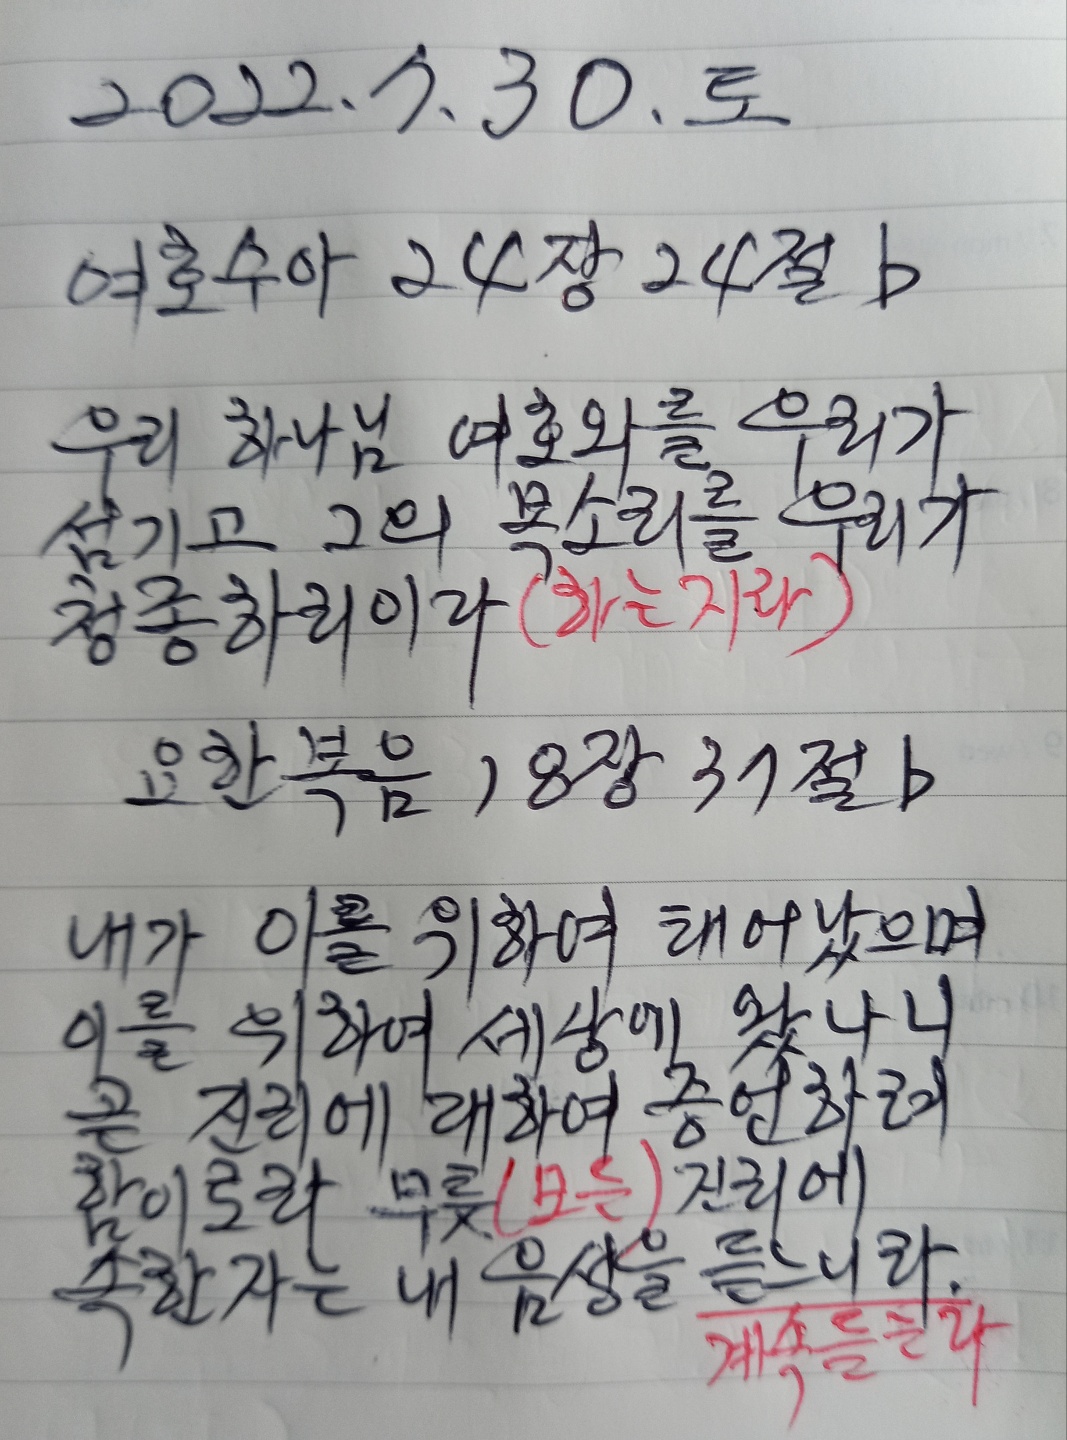 2022.7.30.토
여호수아 24장 24절 b
우리 하나님 여호와를 우리가
섬기고 그의 목소리를 우리가
청종하리이다 (하는지라)
요한복음 18장 37절 b
내가 이를 위하여 태어났으며
이를 위하여 세상에 왔나니
곧 진리에 대하여 증언하려
함이로라 무릇 (모든) 진리에
속한 자는 내 음성을 듣느니라.
계속듣는다